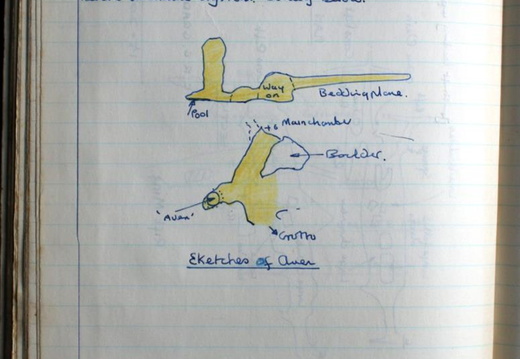 Way
on
Beddingplane.
Pool
to Mainchamber
Boulder.
'Aven'
Grotto
Sketches of Aven